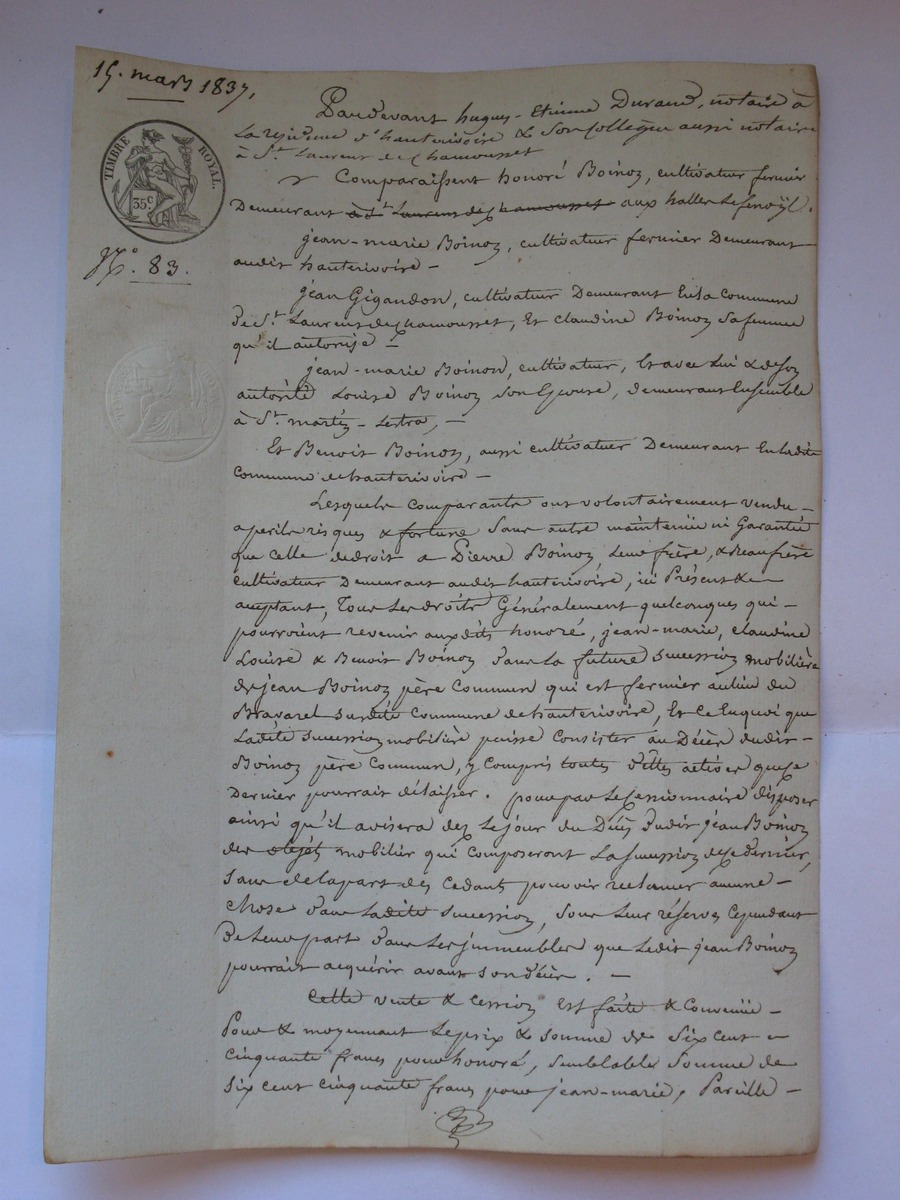 15. mars 1837.
TIMBRE ROYAL.
35 c
N.º 83.
Pardevant hugues-Etienne Durand, notaire à
La résidence d'hauterivoire & Son Collègue aussi notaire
à St. Laurent de Chamousset
Comparaissent honoré Boinoz, cultivateur fermier
Demeurant à St Laurent de Chamousset aux halles Le fenoÿl.
jean-marie Boinoz, cultivateur fermier Demeurant
audit hauterivoire –
jean Gigandon, cultivateur Demeurant En la Commune
de St. Laurent de Chamousset, Et Claudine Boinoz sa femme
qu'il autorise –
jean-marie Boinon, cultivateur, Et avec lui & de son
autorité Louise Boinoz Son Epouse, demeurant Ensemble
à St. martin-Lestra, –
Et Benoit Boinoz, aussi cultivateur Demeurant En ladite
Commune de hauterivoire –
Lesquels comparants ont volontairement vendu –
a perils risques & fortune Sans autre maintenüe ni Garantie
que celle de droit a Pierre Boinoz, leur frère, & Beaufrère
cultivateur Demeurant audit hauterivoire, ici Présent & –
acceptant, Tous Les droits Généralement quelconques qui –
pourroient revenir auxdits honoré, jean-marie, claudine
Louise & Benoit Boinoz dans La future succession mobilière
de jean Boinoz père Commun qui est fermier au lieu du
Bravarel Susdite Commune de hauterivoire, Et Ce En quoi que
Ladite succession mobilière puisse Consister au Décès dudit –
Boinoz père Commun, y Compris toutes dettes actives que Ce
Dernier pourrait délaisser. pour par Le Cessionnaire disposer
ainsi qu'il avisera dez Le jour du Décès dudit jean Boinoz
des objets mobilier qui Composeront La succession de Ce dernier,
Sans de la part des Cedants pouvoir réclamer aucune –
Chose dans Ladite succession, sous Leur réserve Cependant
de Leur part dans Les jmmeubles que Ledit jean Boinoz
pourrait acquérir avant son décès. –
Cette vente & Cession Est faite & Convenüe –
Pour & moyennant Le prix & somme de Six Cent –
Cinquante francs pour honoré, semblable Somme de
Six cent Cinquante francs pour jean-marie, Pareille –